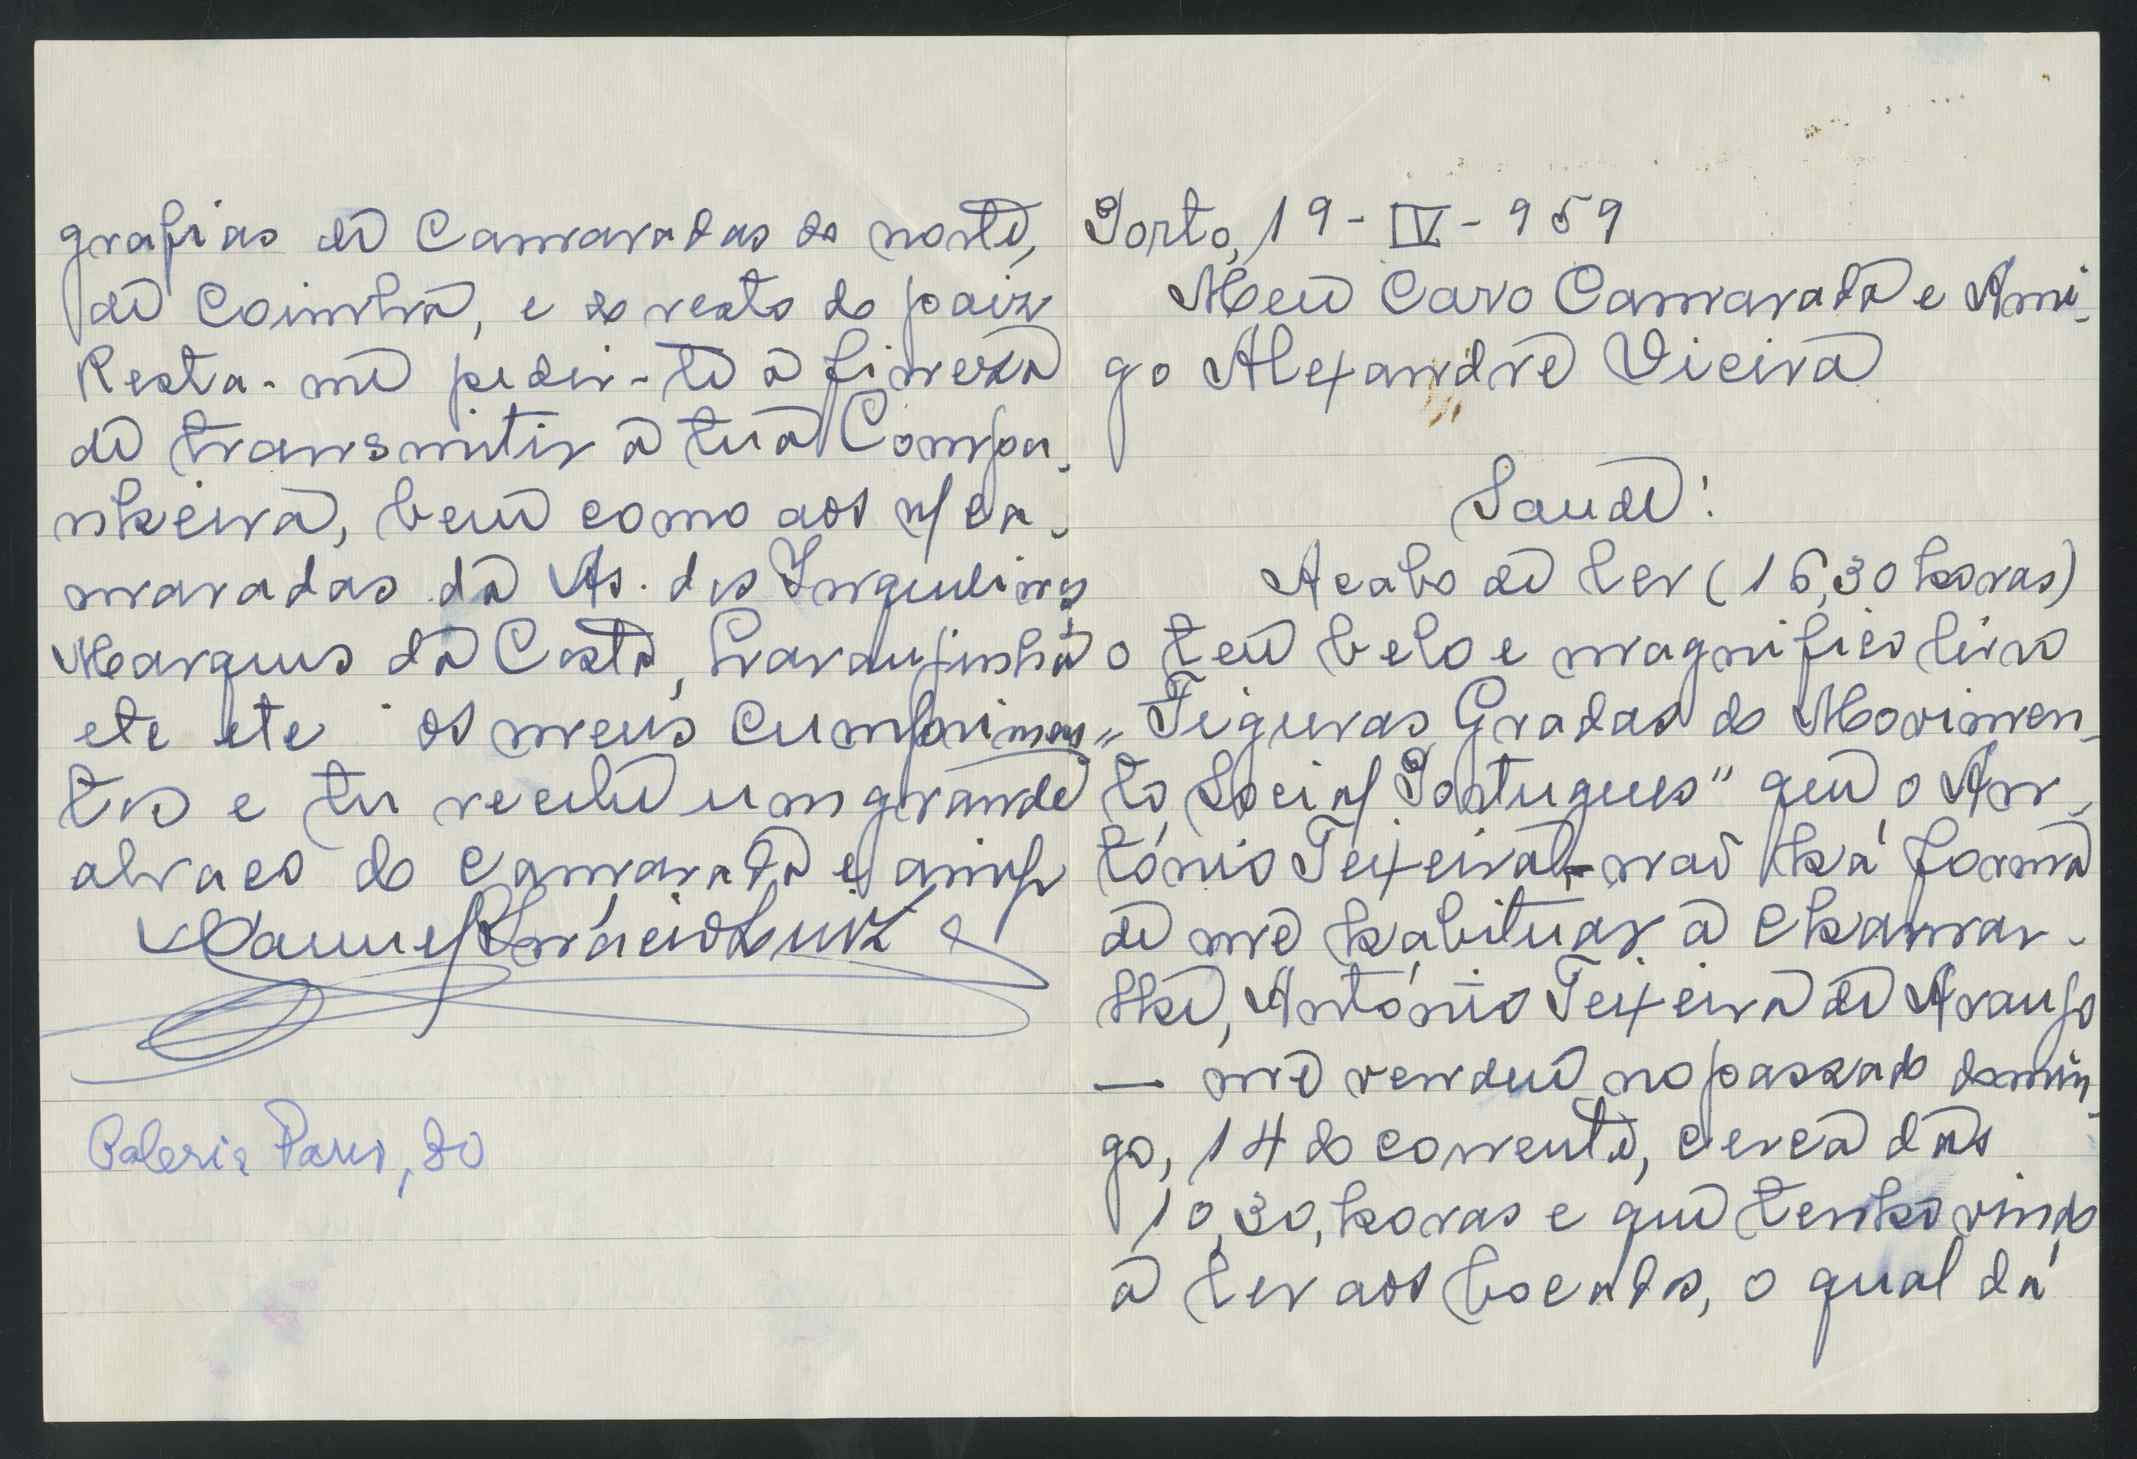 Porto, 19-IV-959
Meu Caro Camarada e Ami-
go Alexandre Vieira
Saude!
Acabo de ler (16,30 horas)
o teu belo e magnifico livro
"Figuras Gradas do Movimen-
to Social Portugues" que o An-
tónio Teixeira — não há forma
de me habituar a chamar-
lhe, António Teixeira de Araujo
— me vendeu no passado domin-
go, 14 do corrente, cerca das
10,30, horas e que tenho vindo
a ler aos bocados, o qual dá
grafias de Camaradas do norte,
de Coimbra, e do resto do paiz
Resta-me pedir-te a fineza
de transmitir a tua Compa-
nheira, bem como aos n/ ca-
maradas da As. dos Inquilinos
Marques da Costa, Laranjinha
etc etc os meus cumprimen-
tos e tu recebe um grande
abraço do camarada e amigo
Luiz
Galeria Paris, 30